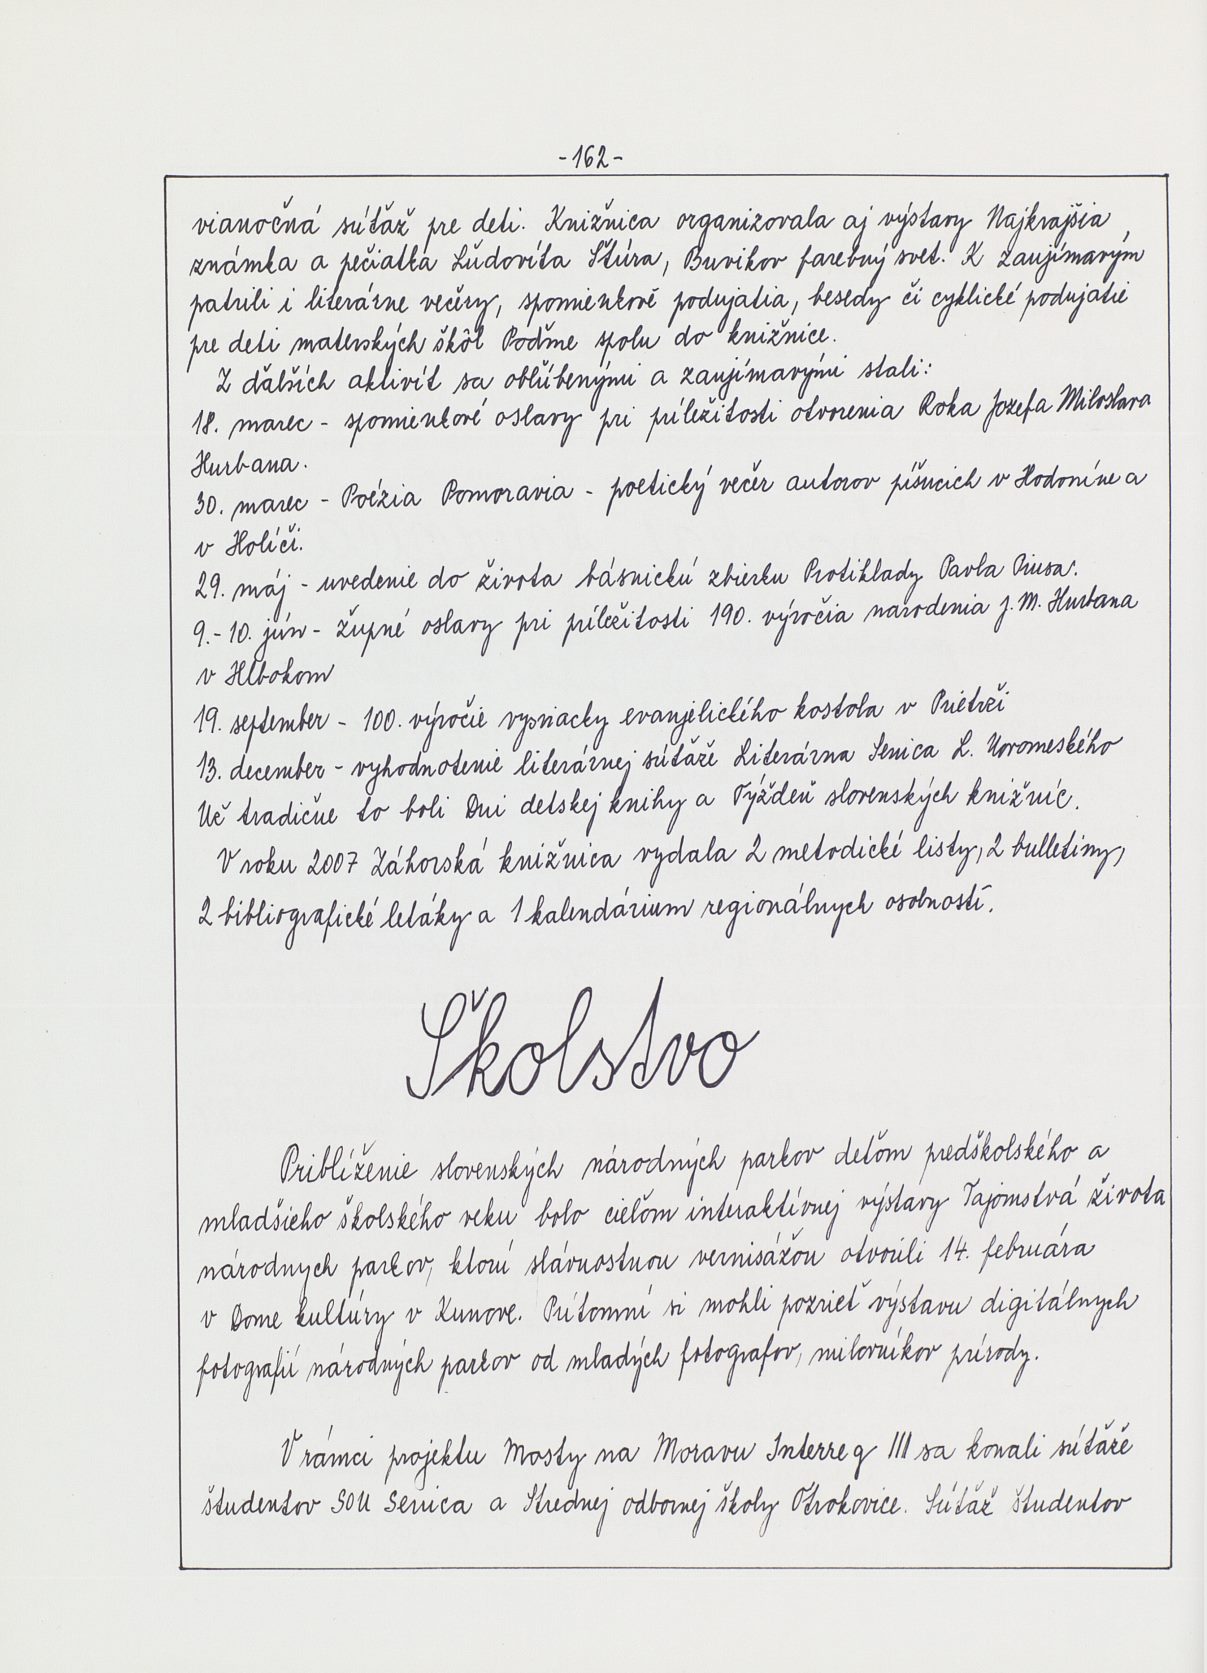 -162-
vianočná súťaž pre deti. Knižnica organizovala aj výstavy Najkrajšia
známka a pečiatka Ľudovíta Štúra, Buvikov farebný svet. K zaujímavým
patrili i literárne večery, spomienkové podujatia, besedy či cyklické podujatie
pre deti materských škôl Poďme spolu do knižnice.
Z ďalších aktivít sa obľúbenými a zaujímavými stali:
18. marec - spomienkové oslavy pri príležitosti otvorenia Roka Jozefa Miloslava
Hurbana.
30. marec - Poézia Pomoravia - poetický večer autorov píšucich v Hodoníne a
v Holíči.
29. máj - uvedenie do života básnickú zbierku Protiklady Pavla Piusa.
9.-10. jún - župné oslavy pri príležitosti 190. výročia narodenia J. M. Hurbana
v Hlbokom
19. september - 100. výročie vysviacky evanjelického kostola v Prietrži
13. december - vyhodnotenie literárnej súťaže Literárna Senica L. Novomeského
Už tradične to boli Dni detskej knihy a Týždeň slovenských knižníc.
V roku 2007 Záhorská knižnica vydala 2 metodické listy, 2 bulletiny,
2 bibliografické letáky a 1 kalendárium regionálnych osobností.
Školstvo
Priblíženie slovenských národných parkov deťom predškolského a
mladšieho školského veku bolo cieľom interaktívnej výstavy Tajomstvá života
národnych parkov, ktorú slávnostnou vernisážou otvorili 14. februára
v Dome kultúry v Kunove. Prítomní si mohli pozrieť výstavu digitálnych
fotografií národných parkov od mladých fotografov, milovníkov prírody.
V rámci projektu Mosty na Moravu Interreg III sa konali súťaže
študentov SOU Senica a Strednej odbornej školy Otrokovice. Súťaž študentov